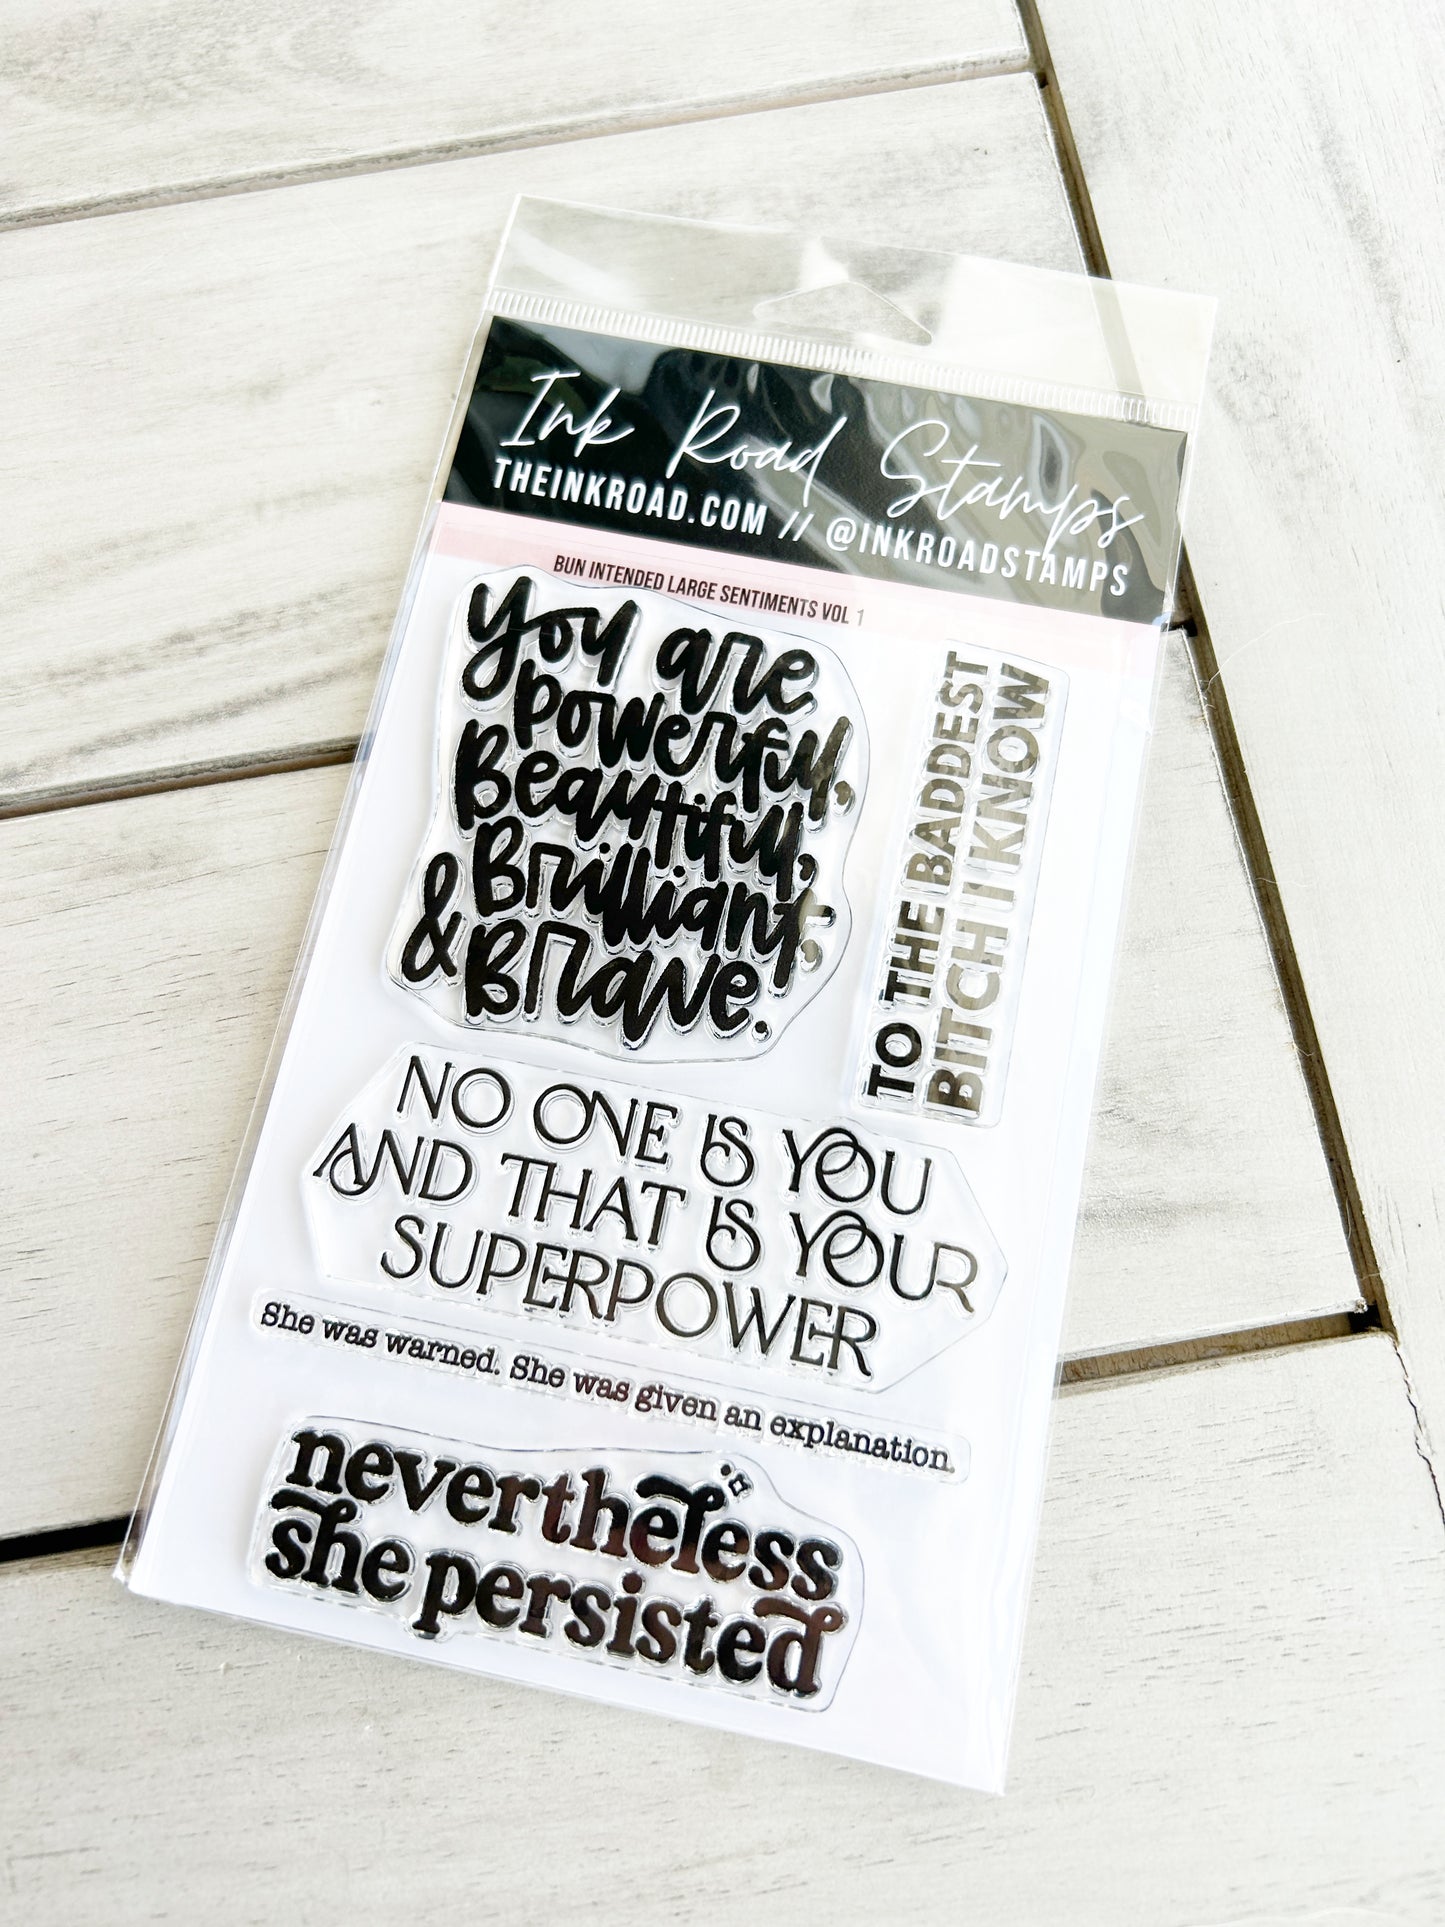 Ink Road Stamps
THEINKROAD.COM // @INKROADSTAMPS
BUN INTENDED LARGE SENTIMENTS VOL 1
You are
Powerful,
Beautiful,
Brilliant,
& Brave.
TO THE BADDEST
BITCH I KNOW
NO ONE IS YOU
AND THAT IS YOUR
SUPERPOWER
She was warned. She was given an explanation.
nevertheless
she persisted